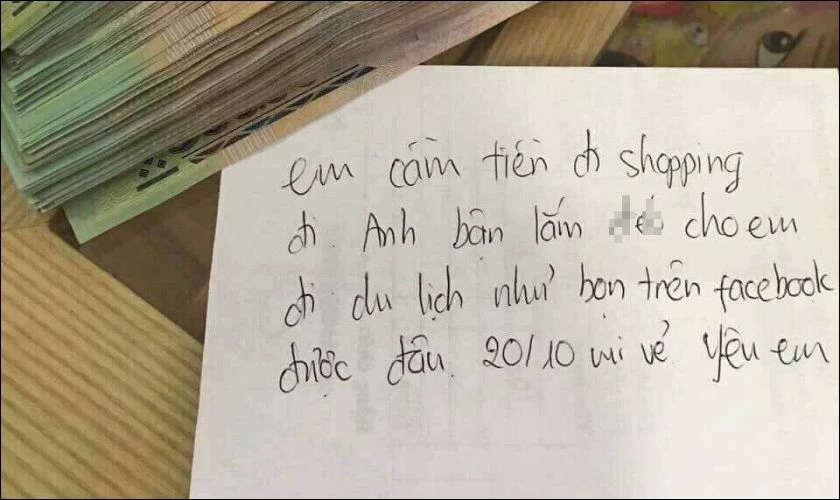 em cầm tiền đi shopping
đi. Anh bận lắm cho em
đi du lịch như bọn trên facebook
được đâu. 20/10 vui vẻ yêu em